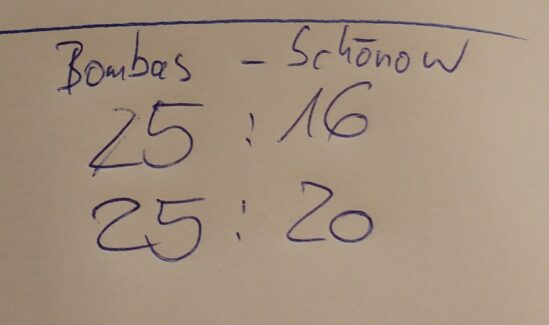 Bombas - Schönow
25 : 16
25 : 20